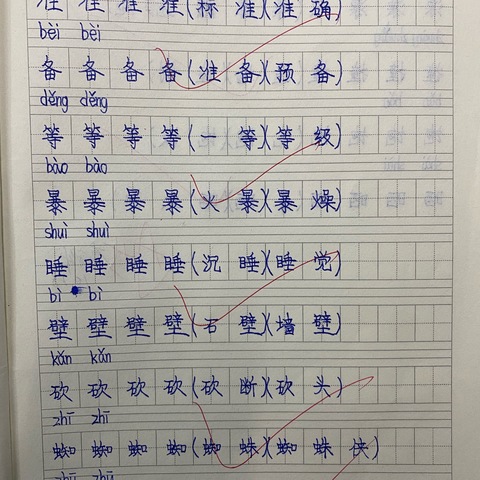 准 准 准 准(标 准)(准 确)
bèi bèi
备 备 备 备(准 备)(预 备)
děng děng
等 等 等 等(一 等)(等 级)
bào bào
暴 暴 暴 暴(火 暴)(暴 燥)
shuì shuì
睡 睡 睡 睡(沉 睡)(睡 觉)
bì bì
壁 壁 壁 壁(石 壁)(墙 壁)
kǎn kǎn
砍 砍 砍 砍(砍 断)(砍 头)
zhī zhī
蜘 蜘 蜘 蜘(蜘 蛛)(蜘 蛛 侠)